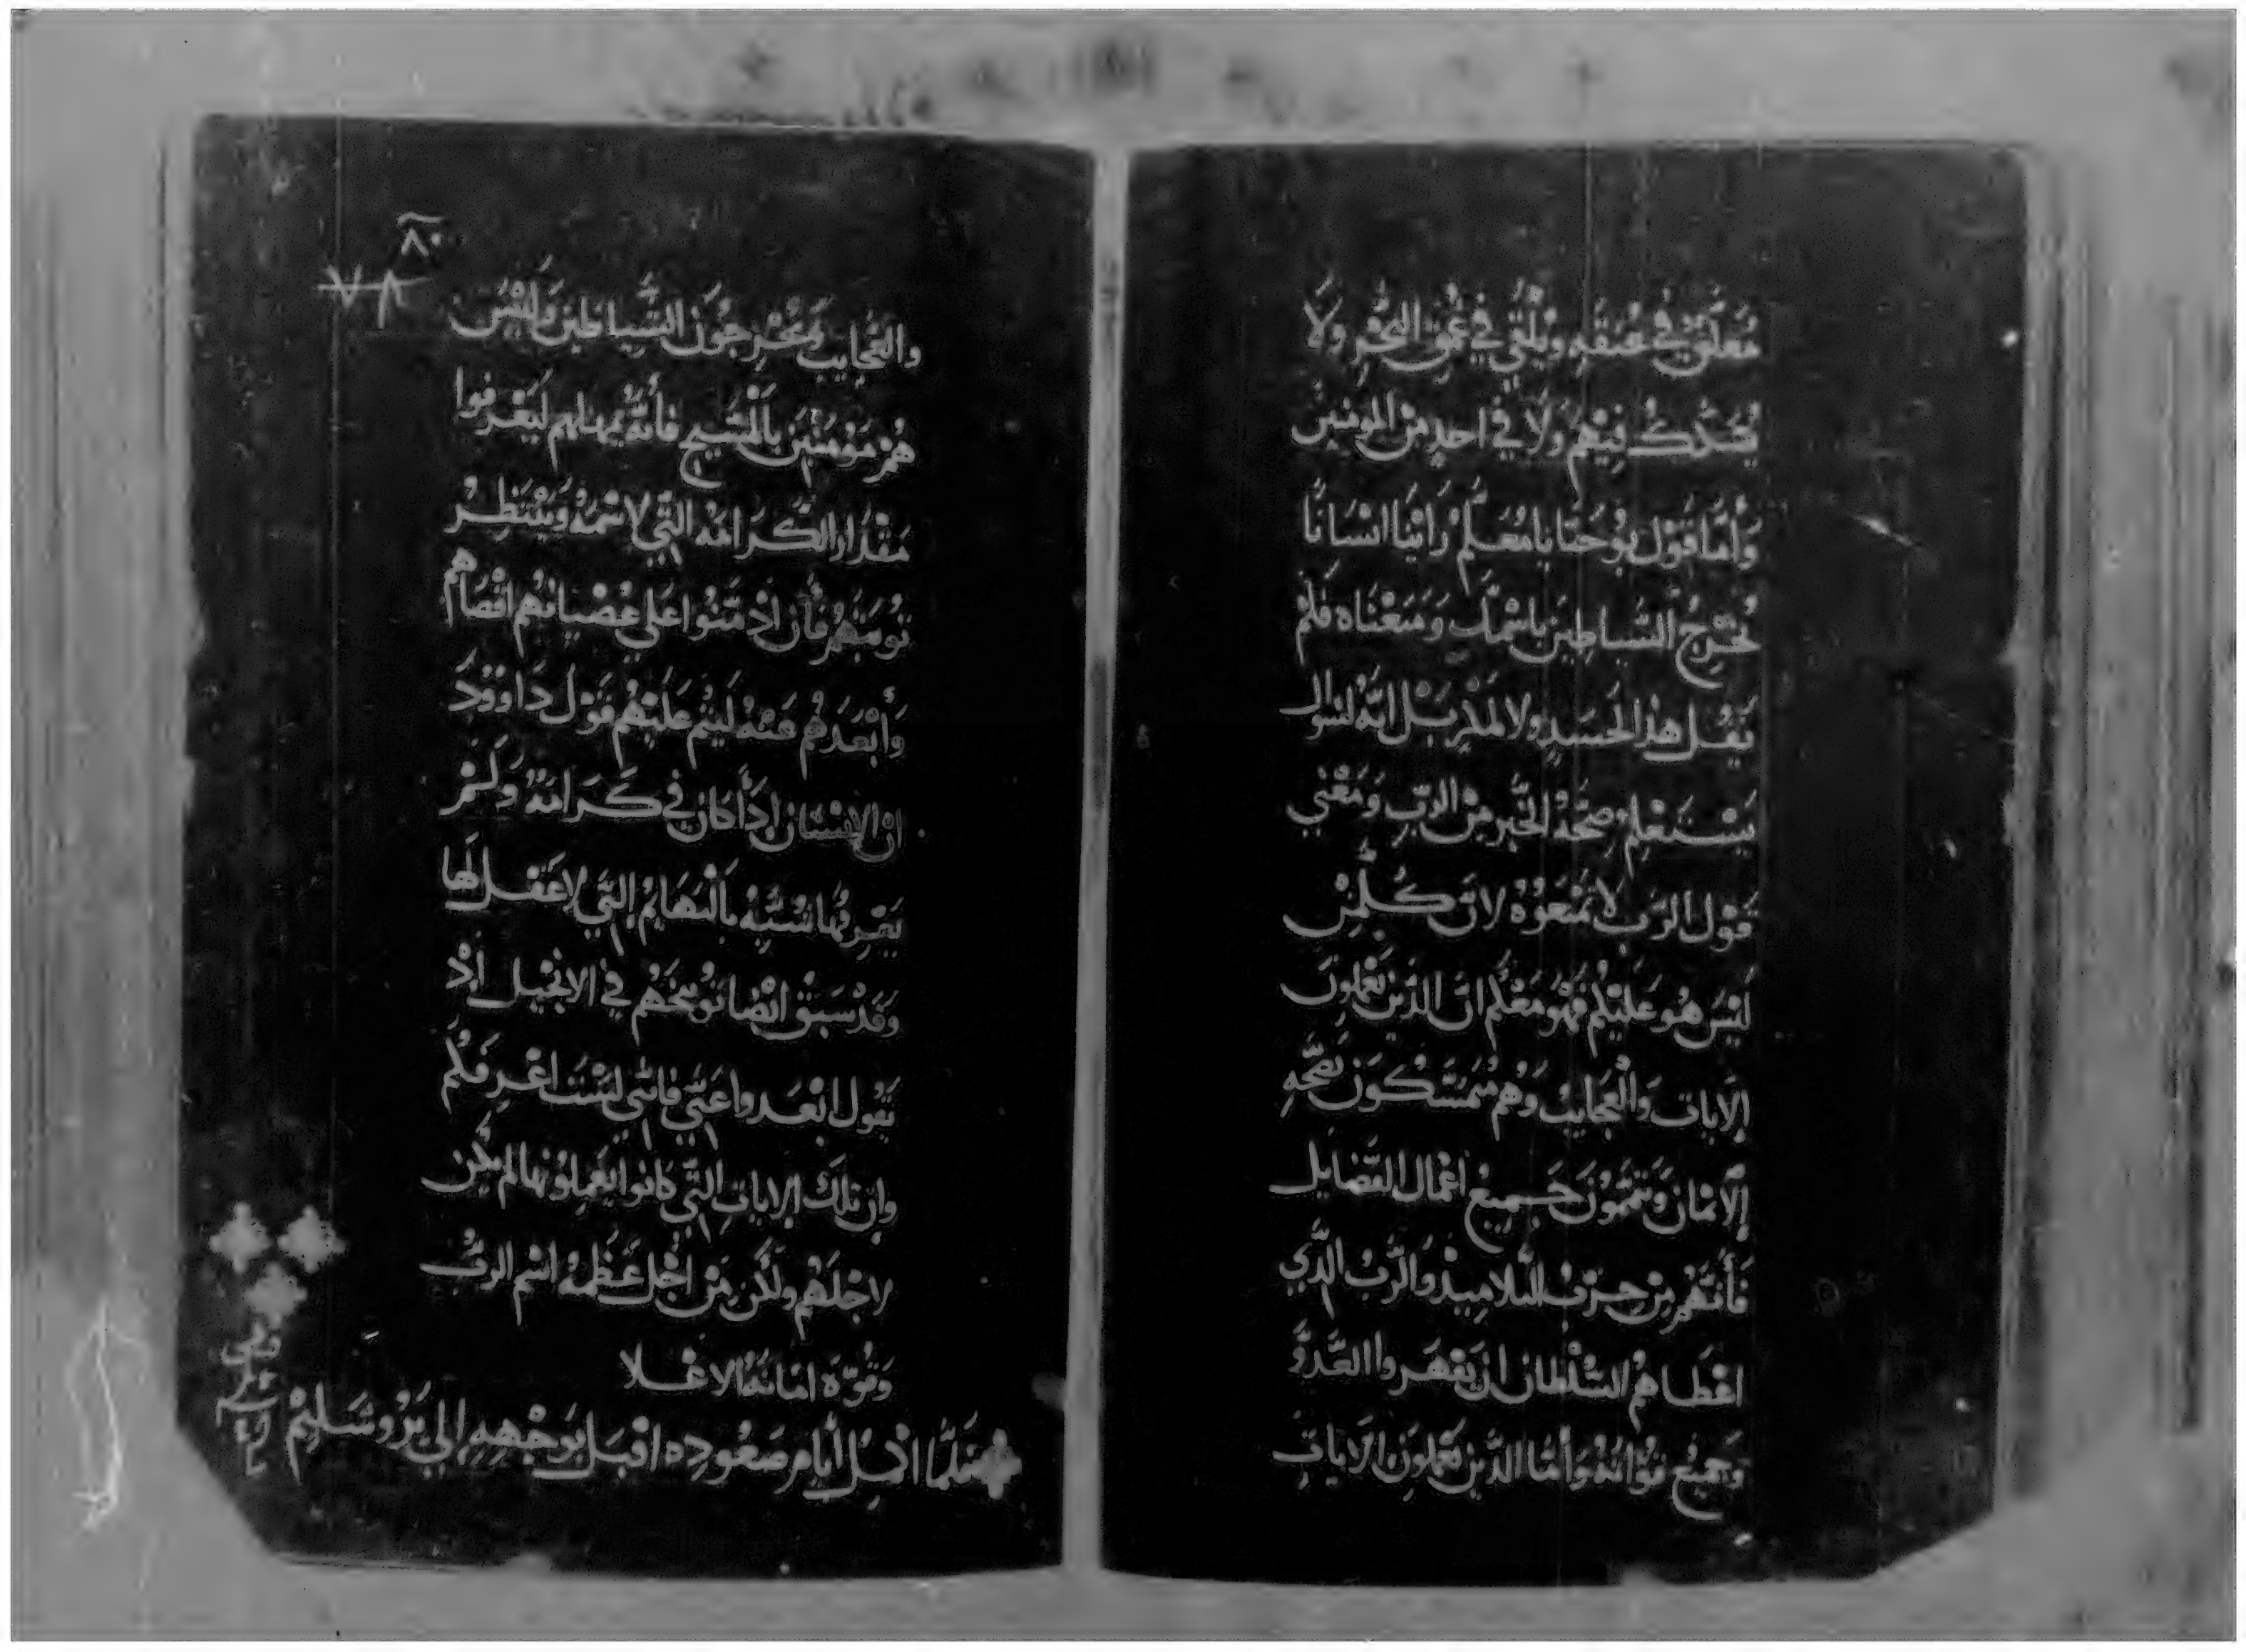 مُعلق في عُنقه ويُلقي في عُمق البَحر ولا
يُشكك فيهم ولا في احدٍ من المومنين
وَأمّا قَول يوُحَنا يا مُعَلم رَاينا انسَانًا
يُخرج الشياطين باسمك وَمَنعناه فلم
يَقُل هذا لحَسَدٍ ولا بل انه لسوال
يَستعلم صحة الخبر من الرَب وَمَعني
قَول الرَب لا تمنعَوُه لان كُلمن
ليَس هُو عَليكم فهُو معَكُم ان الذين يَعملون
الايات وَالعجَايب وَهُم مُتمسّكون بصحّه
الايمان وَيتممون جَميع اعمال الفضايل
فأنهم من حزب التلاميذ والرَب الذي
اعطاهُم السُلطان ان يَقهَروا العَدوّ
وَجميع قواته وَأمّا الذين يَعملون الايات
٨٠
٧٨
والعَجايب وَيُخرجُون الشياطين وَليسَ
هُم مَوُمنين بالمسَيح فأنهُ يمهلهم ليَعرفوا
مقدَار الكَرامَه التي لاسمهُ وَينتظِر
تَوبَتهم فأن اذ متنوا علي عُصيانهم اقصَاهم
وَأبعَدهُم عنهُ ليتم عَليهُم قَول دَاوود
ان الانسان اذَا كان في كَرامَه وَلم
يَعرفها تشبّه بالبهَايم التي لا عَقل لها
وَقد سَبَق ايضا توبيخهُم في الانجيل اذ
يَقول ابعَدوا عَني فانني لسَت اعرفكُم
وان تلك الايات التي كانوا يَعملونها لم تكن
لاجلهُم ولكن من أجل عَظمة اسم الربُ
وَقُوّة امانتهُ الاعلا
فلمّا اكمل أيام صَعُوده اقبَل بَوجههِ إلي يَروشَليم